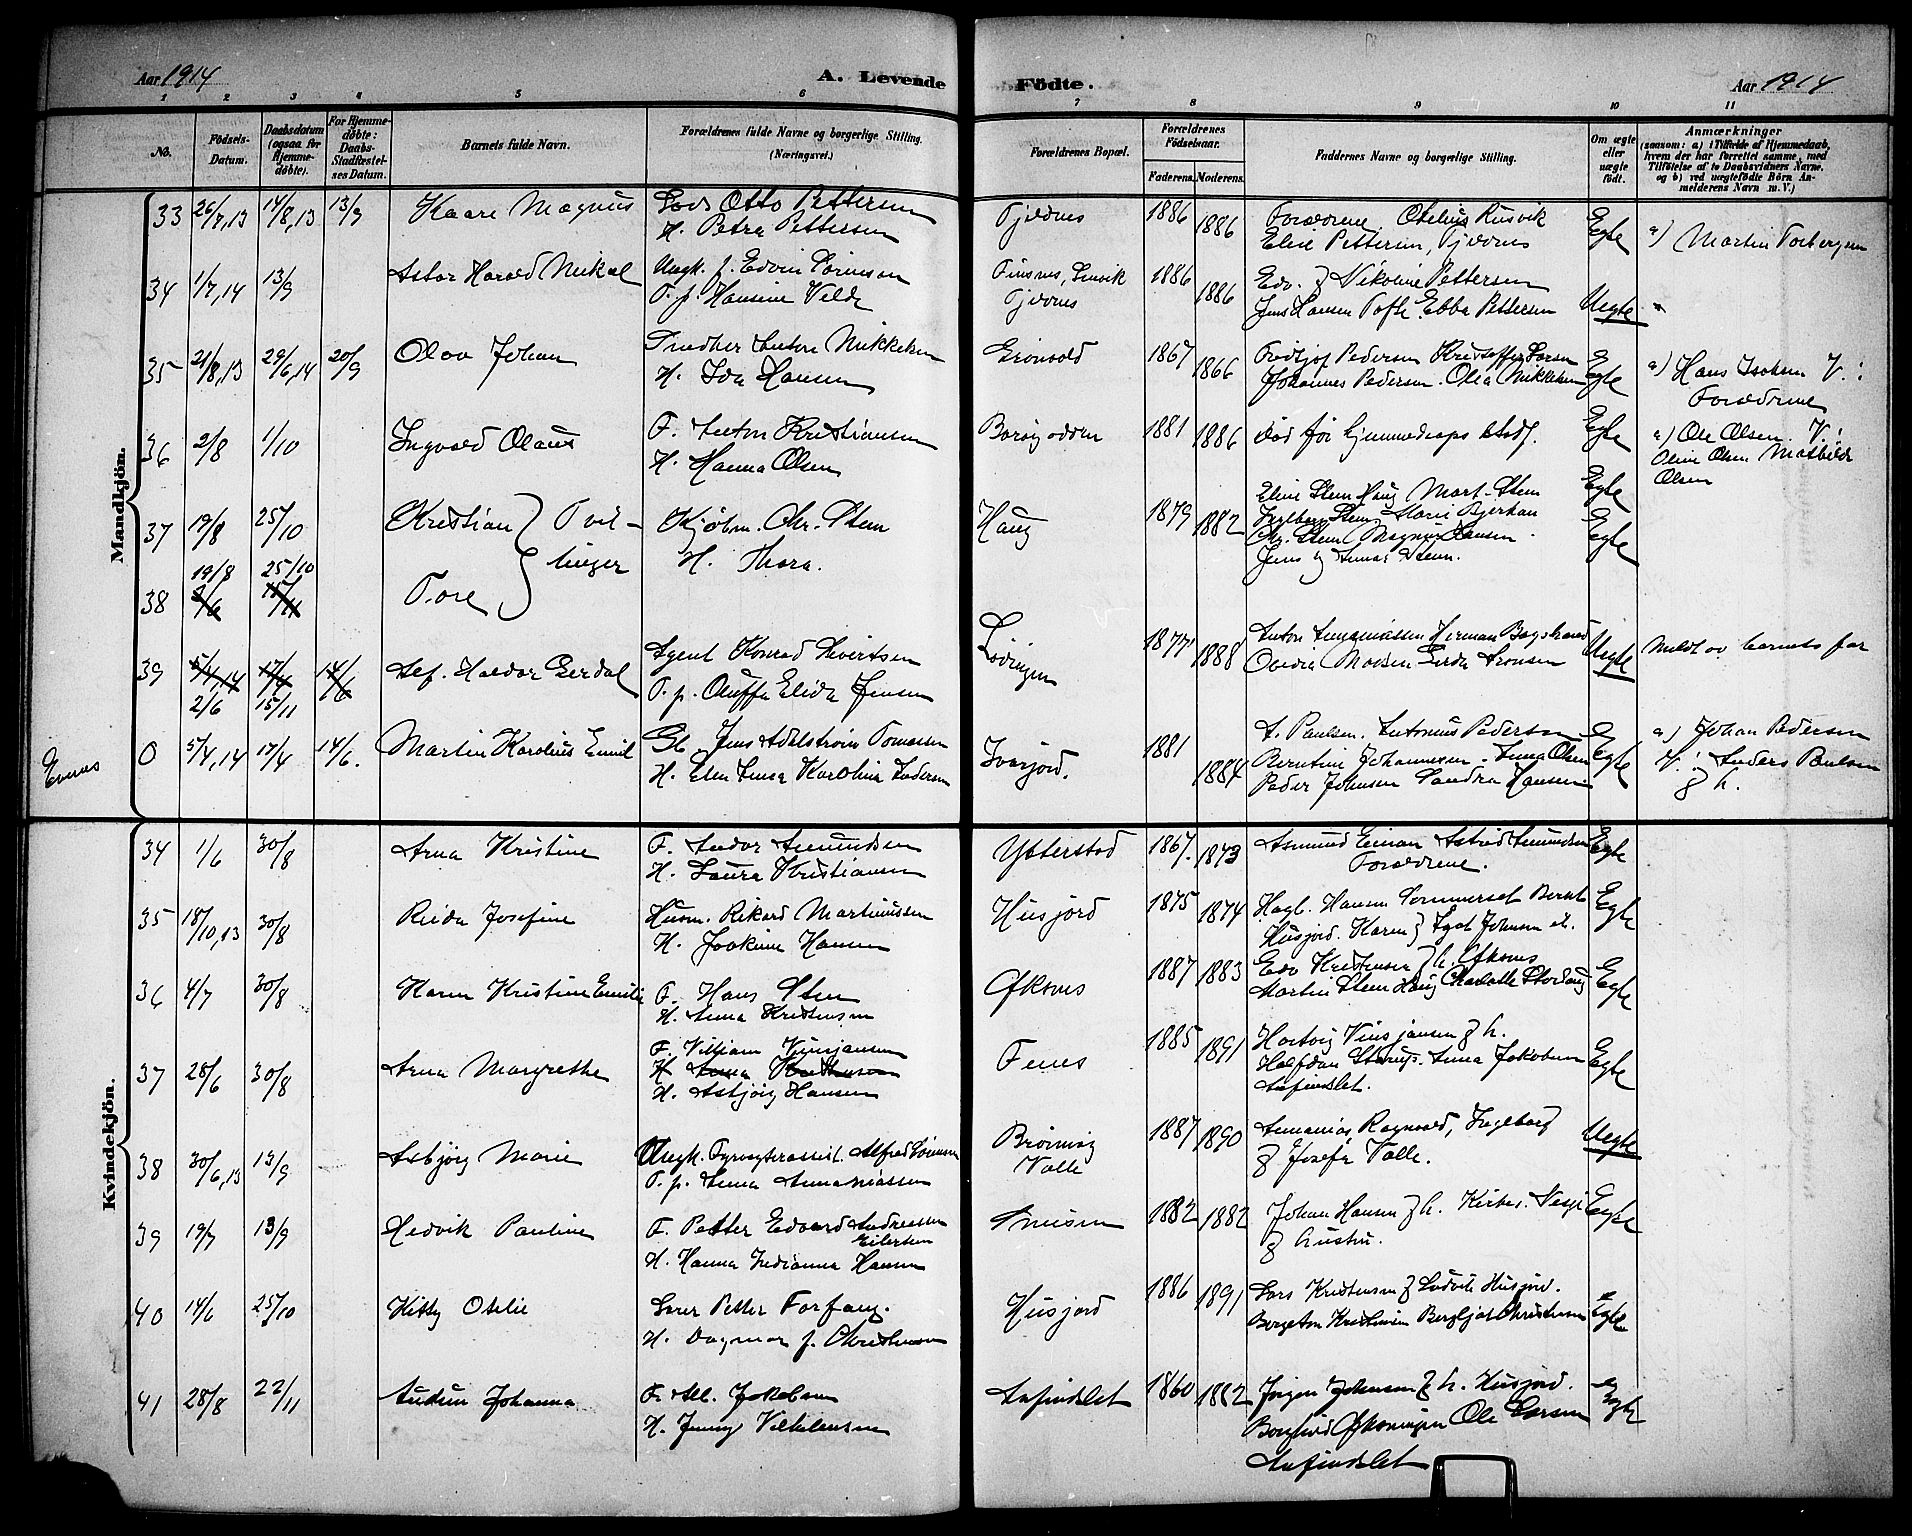 Aar 1914
A. Levende Födte.
Aar 1914
1 2 3 4 5 6 7 8 9 10 11
No.
Födsels-Datum.
Daabsdatum (ogsaa for Hjemme-döbte).
For Hjemme-döbte: Daabs-Stadfæstel-ses Datum.
Barnets fulde Navn.
Forældrenes fulde Navne og borgerlige Stilling. (Næringsvei.)
Forældrenes Bopæl.
Forældrenes Födselsaar.
Faderens. Moderens.
Faddernes Navne og borgerlige Stilling.
Om ægte eller uægte födt.
Anmærkninger
(saasom: a) i Tilfælde af Hjemmedaab, hvem der har forrettet samme, med Tilföielse af to Daabsvidners Navne, og b) ved uægtefödte Börn An-melderens Navn m. V.)
Mandkjön.
33 26/7,13 14/8,13 13/9 Kaare Magnus
Otto Pettersen
H. Petra Pettersen
Tjeldnes 1886 1886
Forældrene, Otelius Rusvik
Elise Pettersen, Tjeldnes
Egte
a) Martin Torbergsen
34 1/7,14 13/9 Astor Harald Mikal
Ungk. f. Edvin Sörensen
T. p. Hansine Velde
Tjeldnes
1886 1886
Edv. & Nikoline Pettersen
Jens Hansen Tofte Ebba Pettersen
Uegte
35 21/8,13 29/6,14 20/9 Olav Johan
Snedker Anton Mikkelsen
H. Ida Hansen
Grönvold 1867 1866
Fridtjof Pedersen Kristoffer Larsen
Johannes Pedersen. Olea Mikkelsen
Egte
a) Hans Isaksen V.:
Forældrene
36 2/8 1/10 Ingvald Olaus
F. Anton Kristiansen
H. Hanna Olsen
Baröyodden 1881 1886
död før hjemmedaaps stadf.
Egte
a) Ole Olsen. V.:
Oline Olsen Mathilde
Olsen
37 19/8 25/10 Kristian } Tvil-
linger
Kjøbm. Chr. Steen
H. Thora.
Haug 1879 1882
Eline Steen Haug Mart. Steen
Ingeborg Steen, Marie Bjerkan
Chr. Steen Magnus Hansen.
Jens & Anna Steen.
Egte
Egte
38 19/8 25/10 Tore
2/6 15/11
39 5/4,14 17/4 14/6
2/6 15/11
Alf. Haldor Gerdal
Agent Konrad Sivertsen
T. p. Oluffa Elida Jensen
Lödingen 1877 1888
Anton Ananiassen Herman Bogstrand
Ovedia Madsen Gerda Aronsen
Uegte
Meldt av barnets far
Evenes
0 5/4,14 17/4 14/6. Martin Karolius Emil
Gb. Jens Adelstroim Tomassen
H. Elen Anna Karolina Andersen
Ivarjord. 1881 1884
A. Paulsen. Antonius Pedersen
Berntine Johannesen. Anna Olsen
Peder Johnsen Sandra Hansen
Egte
a) Johan Pedersen
V: Anders Paulsen
& h.
Kvindekjön.
34 1/6 30/8 Arna Kristine
F. Andor Amundsen
H. Laura Kristiansen
Ytterstad 1867. 1873
Asmund Einar Astrid Amundsen
Forældrene.
Egte
35 18/10,13 30/8 Reida Josefine
Husm. Rikard Martinussen
H. Joakime Hansen
Husjord 1875 1874
Hagb. Hansen Sommerset Bernt
Husjord. Karen & Johnsen
Egte
36 4/7 30/8 Karen Kristine Emilie
F. Hans Steen
H. Anna Kristensen
Ofksnes 1887 1883
Edv Kristensen & h. Ofksnes
Martin Steen Haug Charlotte Storhaug
Egte
37 28/6 30/8 Arna Margrethe
F. Villiam Vinsjansen
H. Anna Kristensen
H. Asbjörg Hansen
Fenes 1885 1891
Hartvig Vinsjansen & h.
Halfdan Anna Jakobsen
Anfindslet.
Egte
38 30/6,13 13/9 Asbjörg Marie
Ungk. Fyrvogterassist. Alfred Sörensen
T. p. Anna Ananiassen
Valle
1887 1890
Annanias Ragnvald, Ingeborg
& Josefa Valle.
Uegte
39 19/7 13/9 Hedvik Pauline
F. Petter Edvard Andreassen
Eilertsen
H. Hanna Indianna Hansen
1882 1882
Johan Hansen & h. Kirkes. Nesje
& hustru.
Egte
40 14/6 25/10 Kitty Otelie
Lærer Petter Forfang.
H. Dagmar f. Christensen
Husjord 1886 1891
Lars Kristensen & Ludvik Husjord.
Kristensen Bergljot Christensen
Egte
41 28/8 22/11 Audun Johanna
F. Alb. Jakobsen
H. Jenny Vilhelmsen
Anfindslet 1860 1882
Jörgen Johansen & h. Husjord.
Borghild Ole Larsen
Anfindslet
Egte